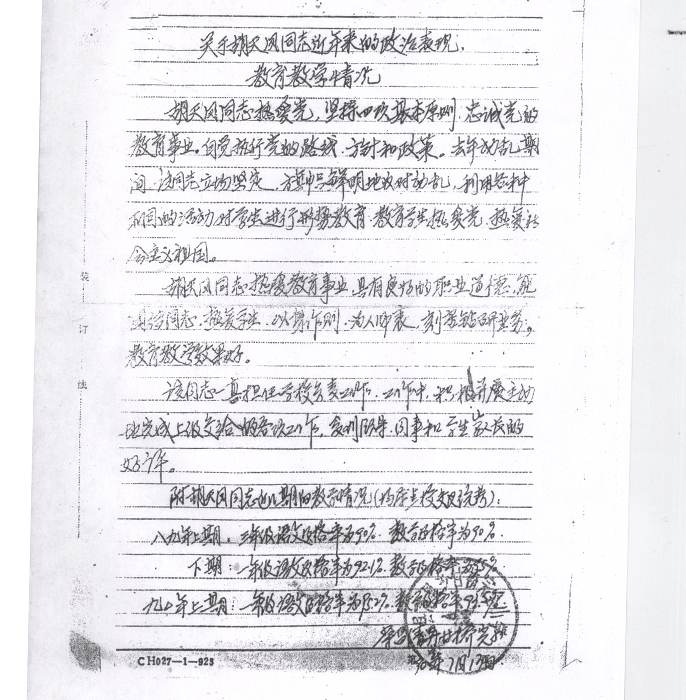 关于胡天风同志近年来的政治表现、
教育教学情况
胡天风同志热爱党，坚持四项基本原则，忠诚党的
教育事业。自觉执行党的路线、方针和政策。去年动乱期
间，该同志立场坚定，旗帜鲜明地反对动乱，利用各种
不同的活动对学生进行形势教育，教育学生热爱党，热爱社
会主义祖国。
胡天风同志热爱教育事业，具有良好的职业道德，能
团结同志，热爱学生，以身作则，为人师表，刻苦钻研业务，
教育教学效果好。
该同志一直担任学校负责工作，工作中，积极并主动
地完成上级交给的各项工作，受到领导、同事和学生家长的
好评。
附胡天风同志近几期的教学情况
八九年上期：三年级语文及格率为90%，数学及格率为90%
下期：一年级语文及格率为92.1%，数学及格率
九〇年上期：一年级语文及格率为
90年7月13日
装
订
线
CH027—1—923